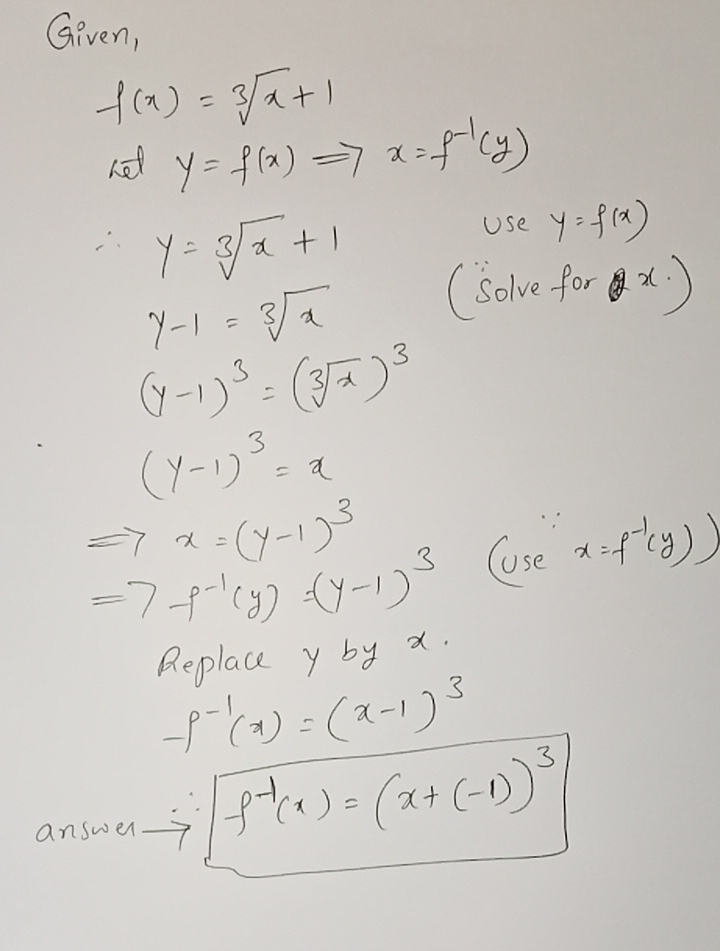 Given,
f(x) = ∛x + 1
Let y = f(x) ⟹ x = f⁻¹(y)
∴ y = ∛x + 1 use y = f(x)
y-1 = ∛x (∵ Solve for x.)
(y-1)³ = (∛x)³
(y-1)³ = x
⟹ x = (y-1)³
⟹ f⁻¹(y) = (y-1)³ (∵ use x = f⁻¹(y))
Replace y by x.
f⁻¹(x) = (x-1)³
answer → ∴ f⁻¹(x) = (x + (-1))³